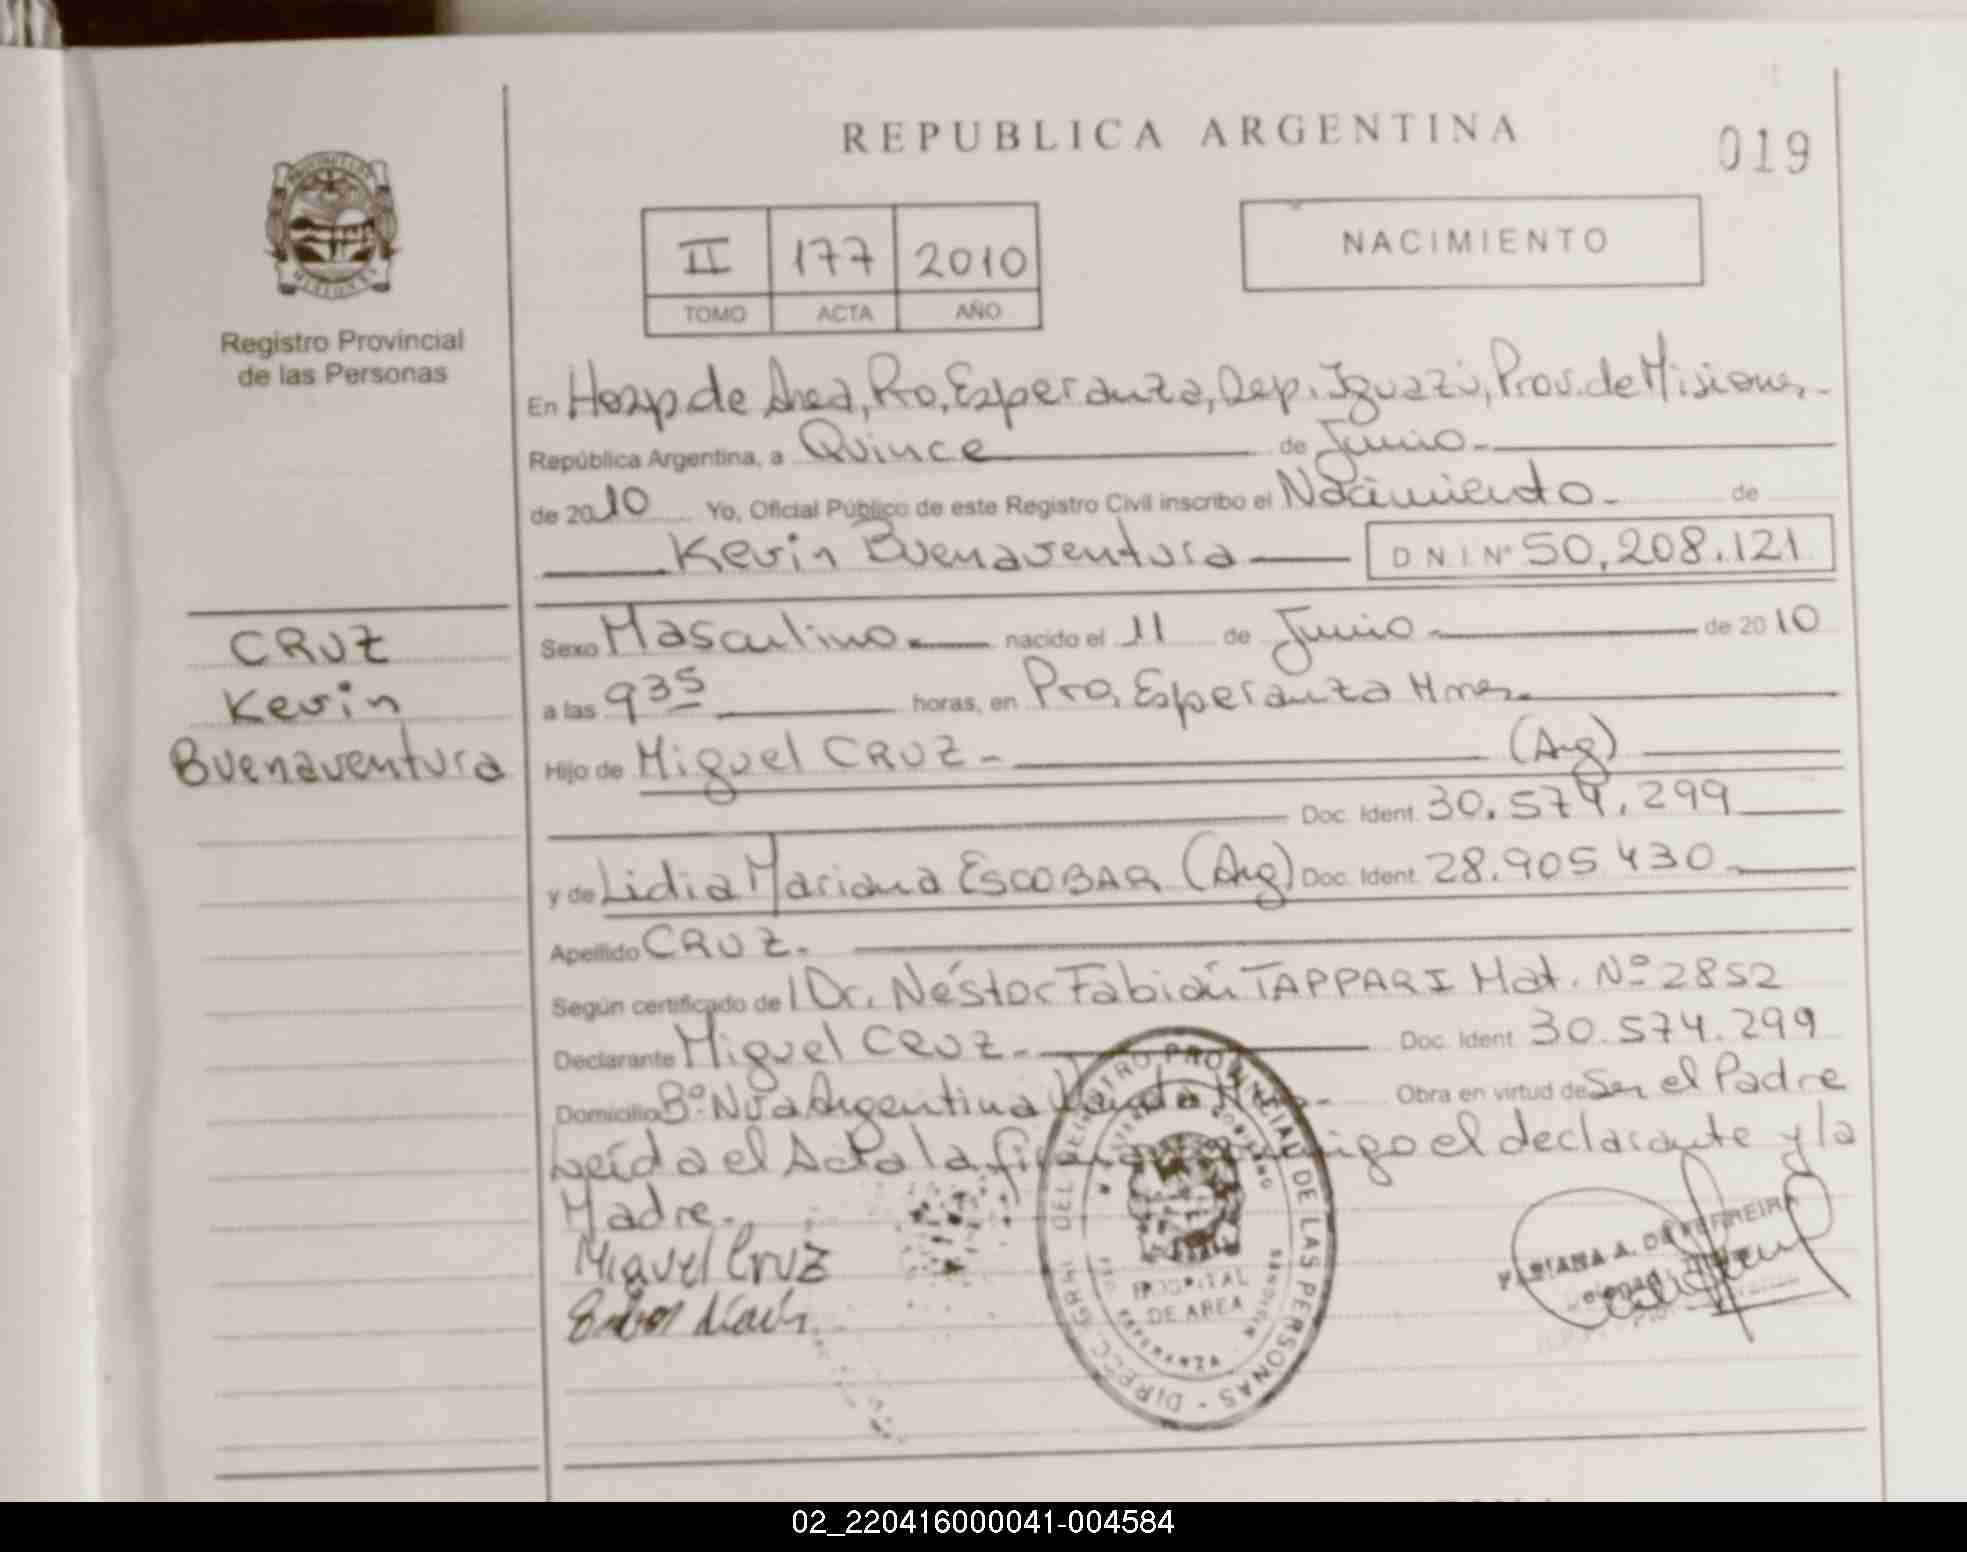 REPUBLICA ARGENTINA
019
II 177 2010
TOMO ACTA AÑO
NACIMIENTO
Registro Provincial
de las Personas
En Hosp de Area, Pto, Esperanza, Dep. Iguazú, Prov. de Misiones.
República Argentina, a Quince de Junio.
de 2010 Yo, Oficial Público de este Registro Civil inscribo el Nacimiento. de
Kevin Buenaventura D N I Nº 50,208.121
CRUZ
Kevin
Buenaventura
Sexo Masculino. nacido el 11 de Junio. de 2010
a las 9 35 horas, en Pto, Esperanza Mnes.
Hijo de Miguel CRUZ. (Arg)
Doc. Ident. 30.574.299
y de Lidia Mariana ESCOBAR (Arg) Doc. Ident. 28.905 430
Apellido CRUZ.
Según certificado de Dr. Néstor Fabián TAPPARI Mat. Nº 2852
Declarante Miguel CRUZ. Doc. Ident. 30.574.299
Domicilio Bº Nva Argentina Wanda Obra en virtud de Ser el Padre
Leída el Acta la el declarante y la
Madre.
Miguel Cruz
DIRECC. GRAL. DEL REGISTRO PROVINCIAL DE LAS PERSONAS
HOSPITAL
DE AREA
02_220416000041-004584